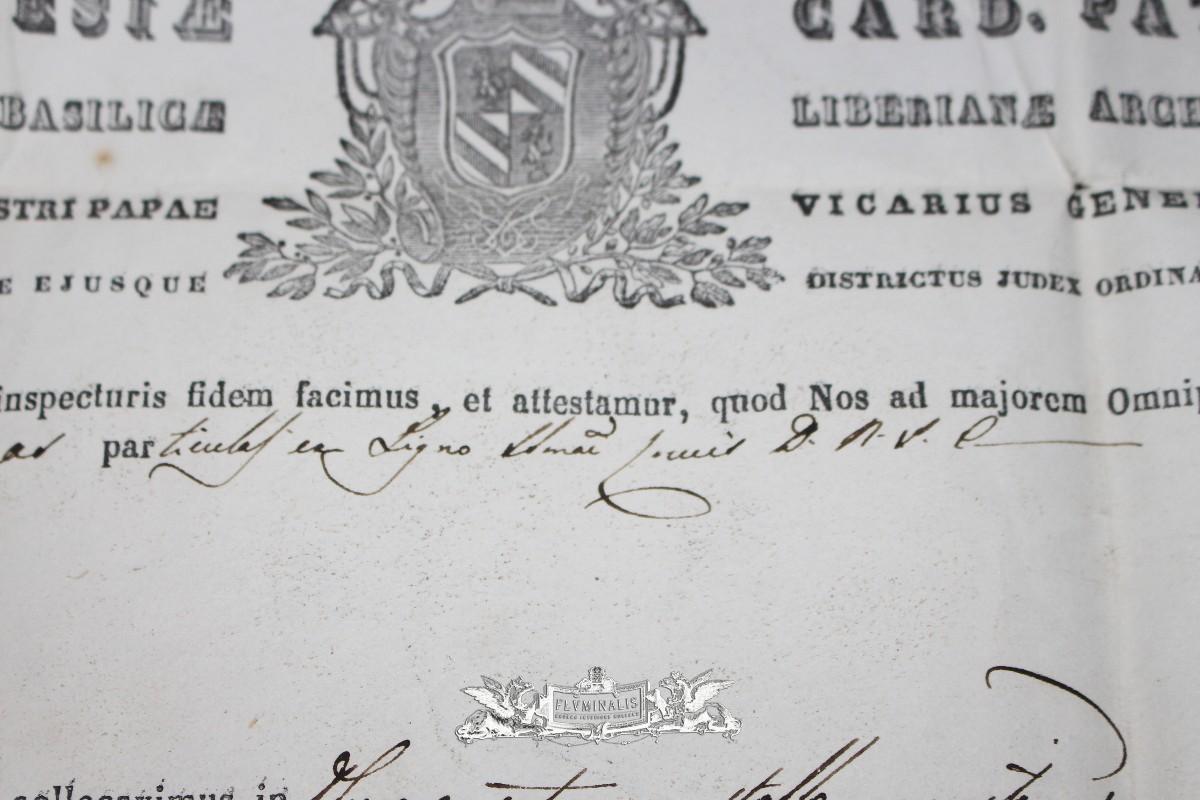 ESIÆ CARD. PAT
BASILICÆ LIBERIANÆ ARCH
STRI PAPAE VICARIUS GENER
E EJUSQUE DISTRICTUS JUDEX ORDINA
inspecturis fidem facimus, et attestamur, quod Nos ad majorem Omnip
as particulas ex Ligno SSmae Crucis D. N. J. C
FLVMINALIS
collocavimus in